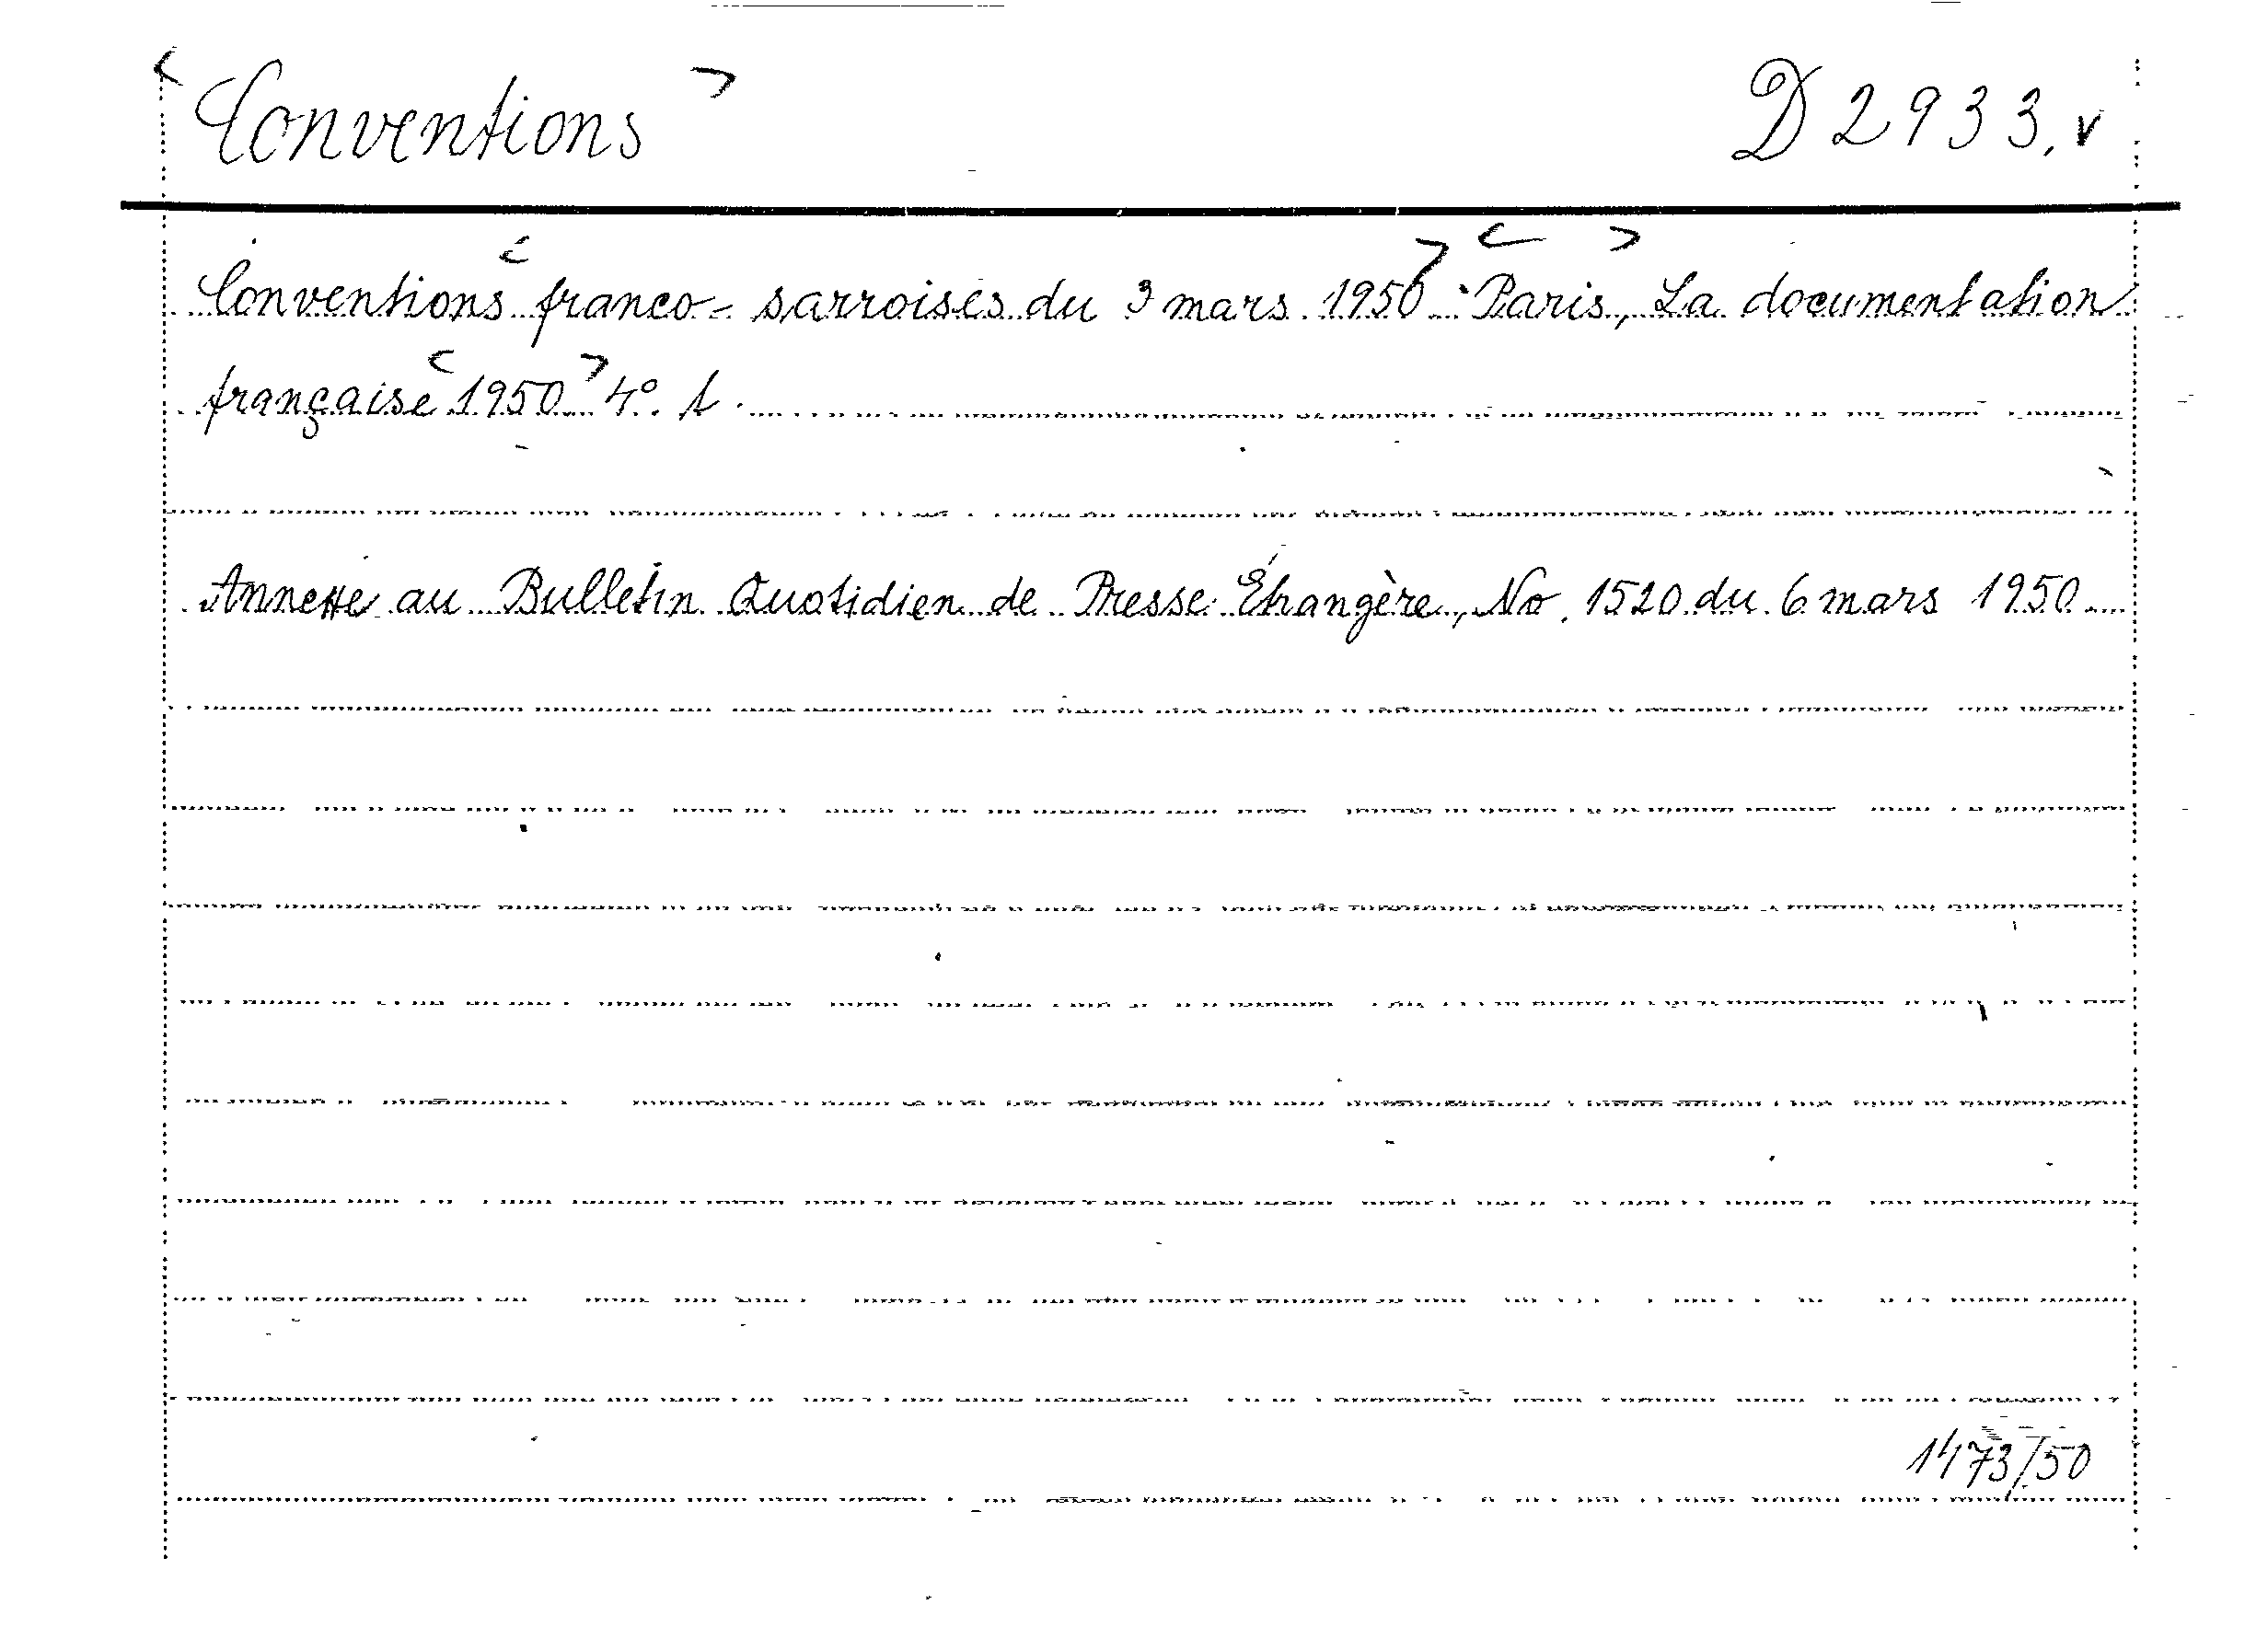 <Conventions> D 2933, v
Conventions <franco-sarroises du 3 mars 1950> <Paris>, La documentation
française <1950> 4°. 1.
Annexe au Bulletin Quotidien de Presse Étrangère, No. 1520 du 6 mars 1950
1473/50